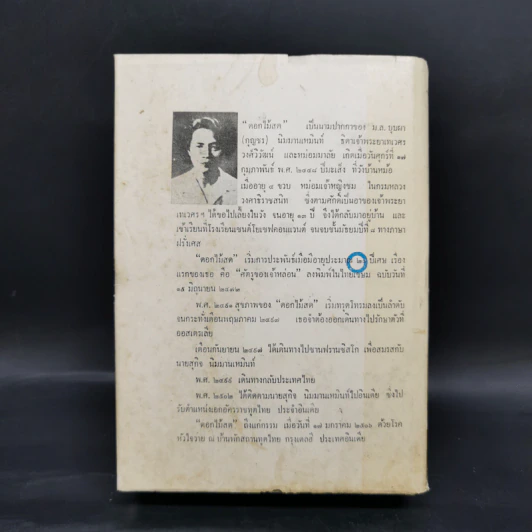 "ดอกไม้สด" เป็นนามปากกาของ ม.ล. บุบผา
(กุญชร) นิมมานเหมินท์ ธิดาเจ้าพระยาเทเวศร
วงศ์วิวัฒน์ และหม่อมมาลัย เกิดเมื่อวันศุกร์ที่ ๑๗
กุมภาพันธ์ พ.ศ. ๒๔๔๘ ปีมะเส็ง ที่วังบ้านหม้อ
เมื่ออายุ ๔ ขวบ หม่อมเจ้าหญิง ในกรมหลวง
วงศาธิราชสนิท ซึ่งตามศักดิ์เป็นอาของเจ้าพระยา
เทเวศรฯ ได้ขอไปเลี้ยงในวัง จนอายุ ๑๓ ปี จึงได้กลับมาอยู่บ้าน และ
เข้าเรียนที่โรงเรียนเซนต์โยเซฟคอนแวนต์ จนจบชั้นมัธยมปีที่ ๘ ทางภาษา
ฝรั่งเศส
"ดอกไม้สด" เริ่มการประพันธ์เมื่อมีอายุประมาณ ปีเศษ เรื่อง
แรกของเธอ คือ "ศัตรูของเจ้าหล่อน" ลงพิมพ์ในไทยเขษม ฉบับวันที่
๑๕ มิถุนายน ๒๔๗๒
พ.ศ. ๒๔๙๑ สุขภาพของ "ดอกไม้สด" เริ่มทรุดโทรมลงเป็นลำดับ
จนกระทั่งเดือนพฤษภาคม ๒๔๙๗ เธอจำต้องออกเดินทางไปรักษาตัวที่
ออสเตรเลีย
เดือนกันยายน ๒๔๙๗ ได้เดินทางไปซานฟรานซิสโก เพื่อสมรสกับ
นายสุกิจ นิมมานเหมินท์
พ.ศ. ๒๔๙๘ เดินทางกลับประเทศไทย
พ.ศ. ๒๕๐๒ ได้ติดตามนายสุกิจ นิมมานเหมินท์ไปอินเดีย ซึ่งไป
รับตำแหน่งเอกอัครราชทูตไทย ประจำอินเดีย
"ดอกไม้สด" ถึงแก่กรรม เมื่อวันที่ ๑๗ มกราคม ๒๕๐๖ ด้วยโรค
หัวใจวาย ณ บ้านพักสถานทูตไทย กรุงเดลฮี ประเทศอินเดีย